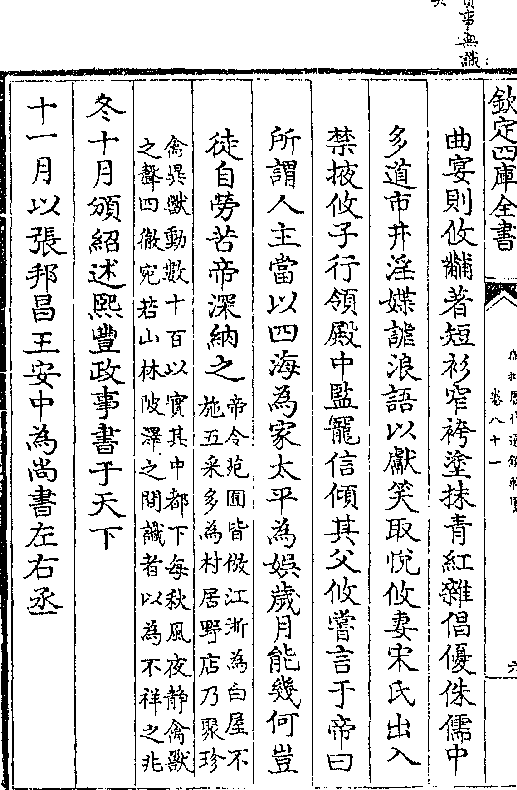 欽定四庫全書
卷八十一
六
曲宴則攸黼著短衫窄袴塗抹青紅雜倡優侏儒中
多道市井淫媟謔浪語以獻笑取悅攸妻宋氏出入
禁掖攸子行領殿中監寵信傾其父攸嘗言于帝曰
所謂人主當以四海為家太平為娛歲月能幾何豈
徒自勞苦帝深納之帝令苑囿皆倣江浙為白屋不
施五采多為村居野店乃聚珍
禽異獸動數十百以實其中都下每秋風夜靜禽獸
之聲四徹宛若山林陂澤之間識者以為不祥之兆
冬十月頒紹述熙豐政事書于天下
十一月以張邦昌王安中為尚書左右丞